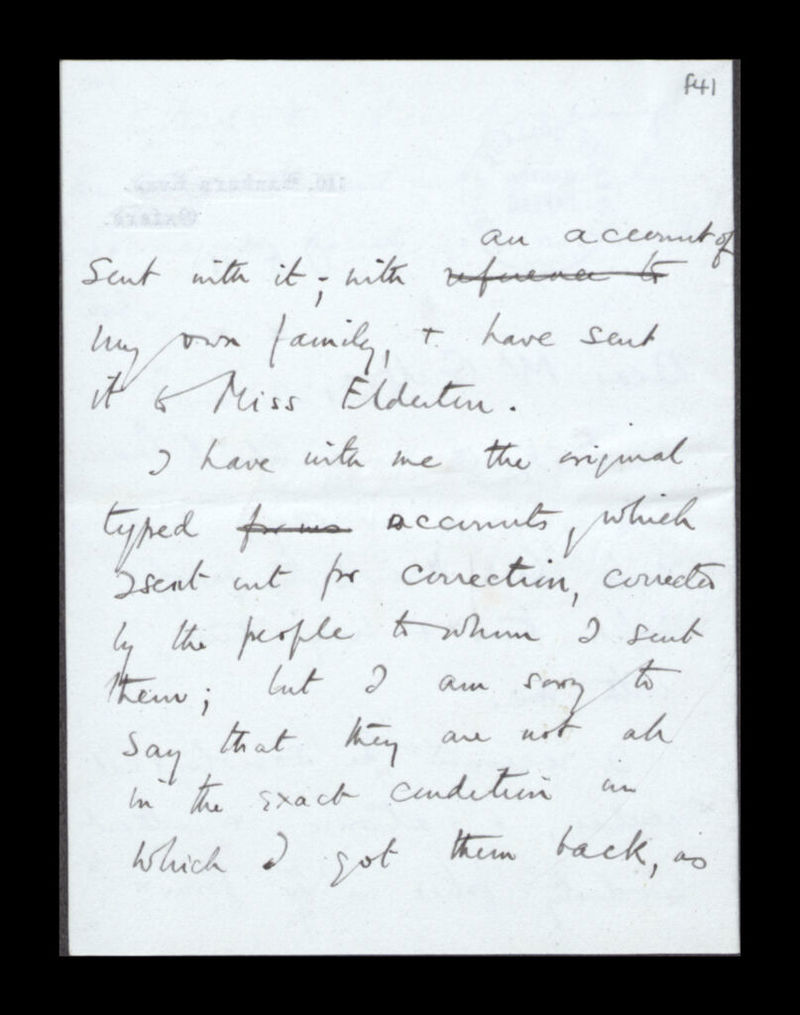 f41
an account of
sent with it; with reference to
my own family, + have sent
it to Miss Elderton.
I have with me the original
typed forms accounts, which
I sent out for correction, corrected
by the people to whom I sent
them; but I am sorry to
say that they are not all
in the exact condition in
which I got them back, as